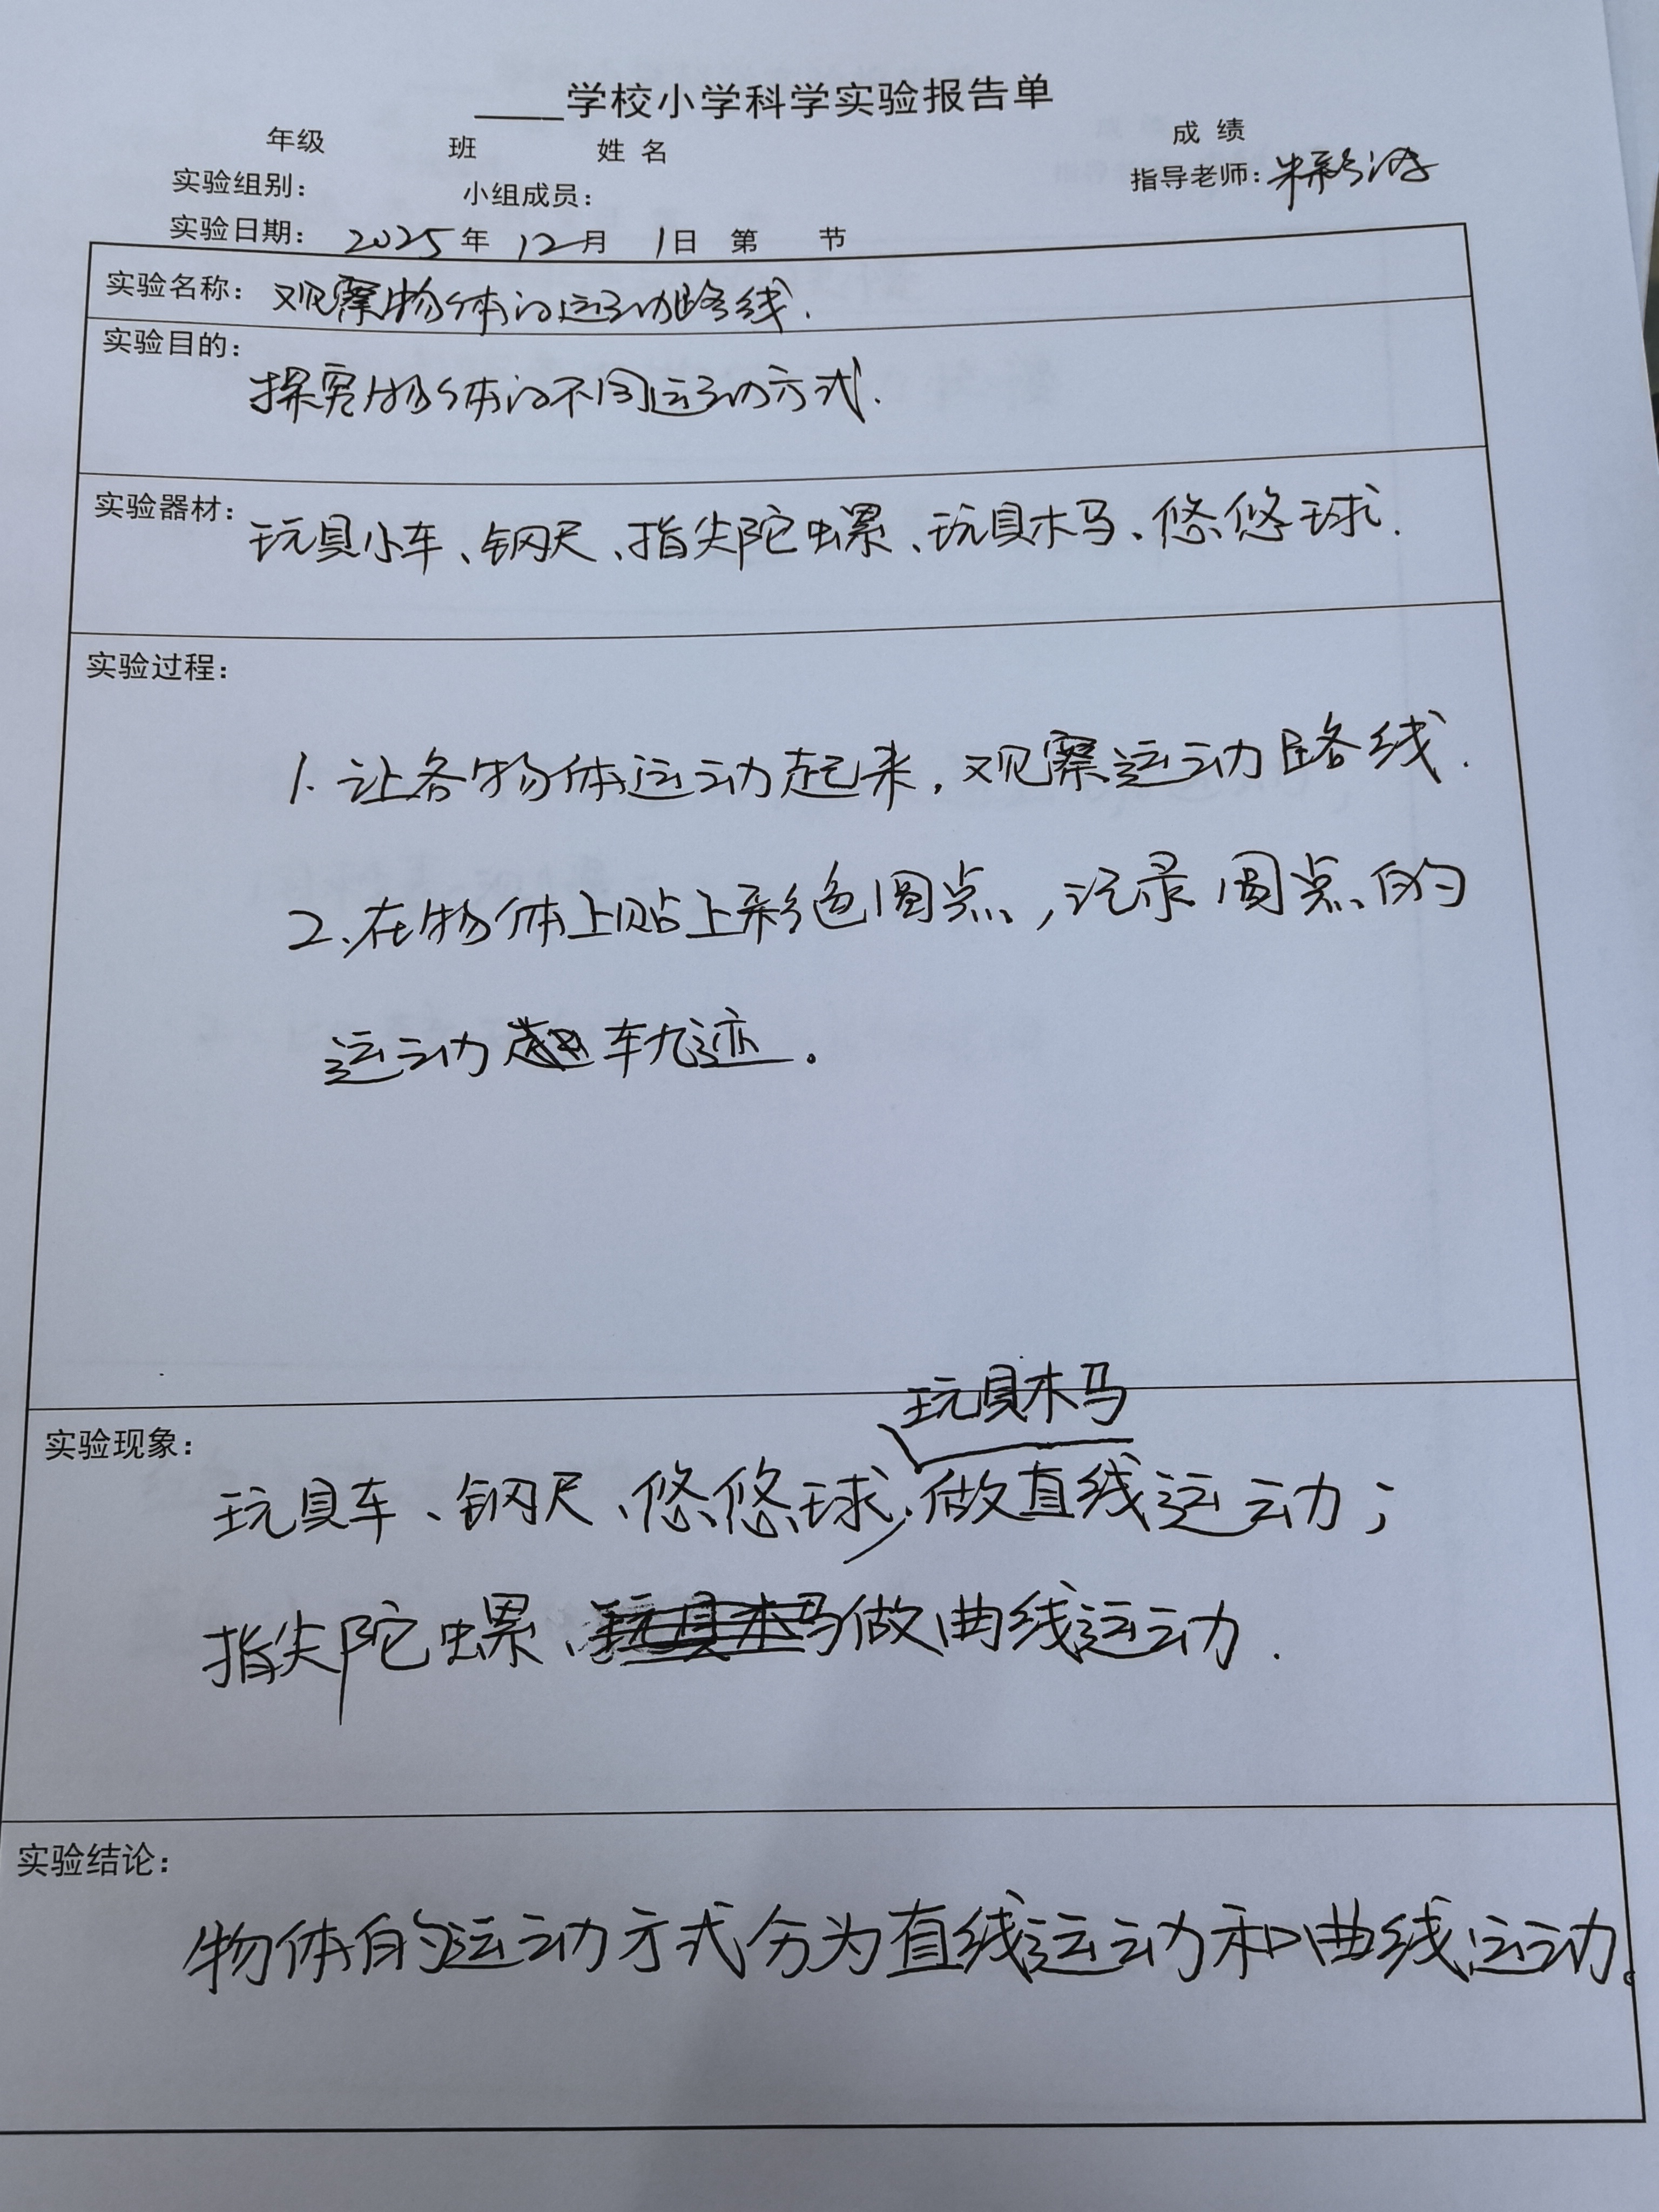 ____学校小学科学实验报告单
年级 班 姓 名 成 绩
实验组别： 小组成员： 指导老师：
实验日期： 2025年 12月 1日 第 节
实验名称：观察物体的运动路线.
实验目的：
探究物体的不同运动方式.
实验器材：玩具小车、钢尺、指尖陀螺、玩具木马、悠悠球.
实验过程：
1. 让各物体运动起来，观察运动路线.
2、在物体上贴上彩色圆点，记录圆点的
运动轨迹。
玩具木马
实验现象：
玩具车、钢尺、悠悠球、做直线运动；
指尖陀螺、玩具木马做曲线运动.
实验结论：
物体的运动方式分为直线运动和曲线运动。